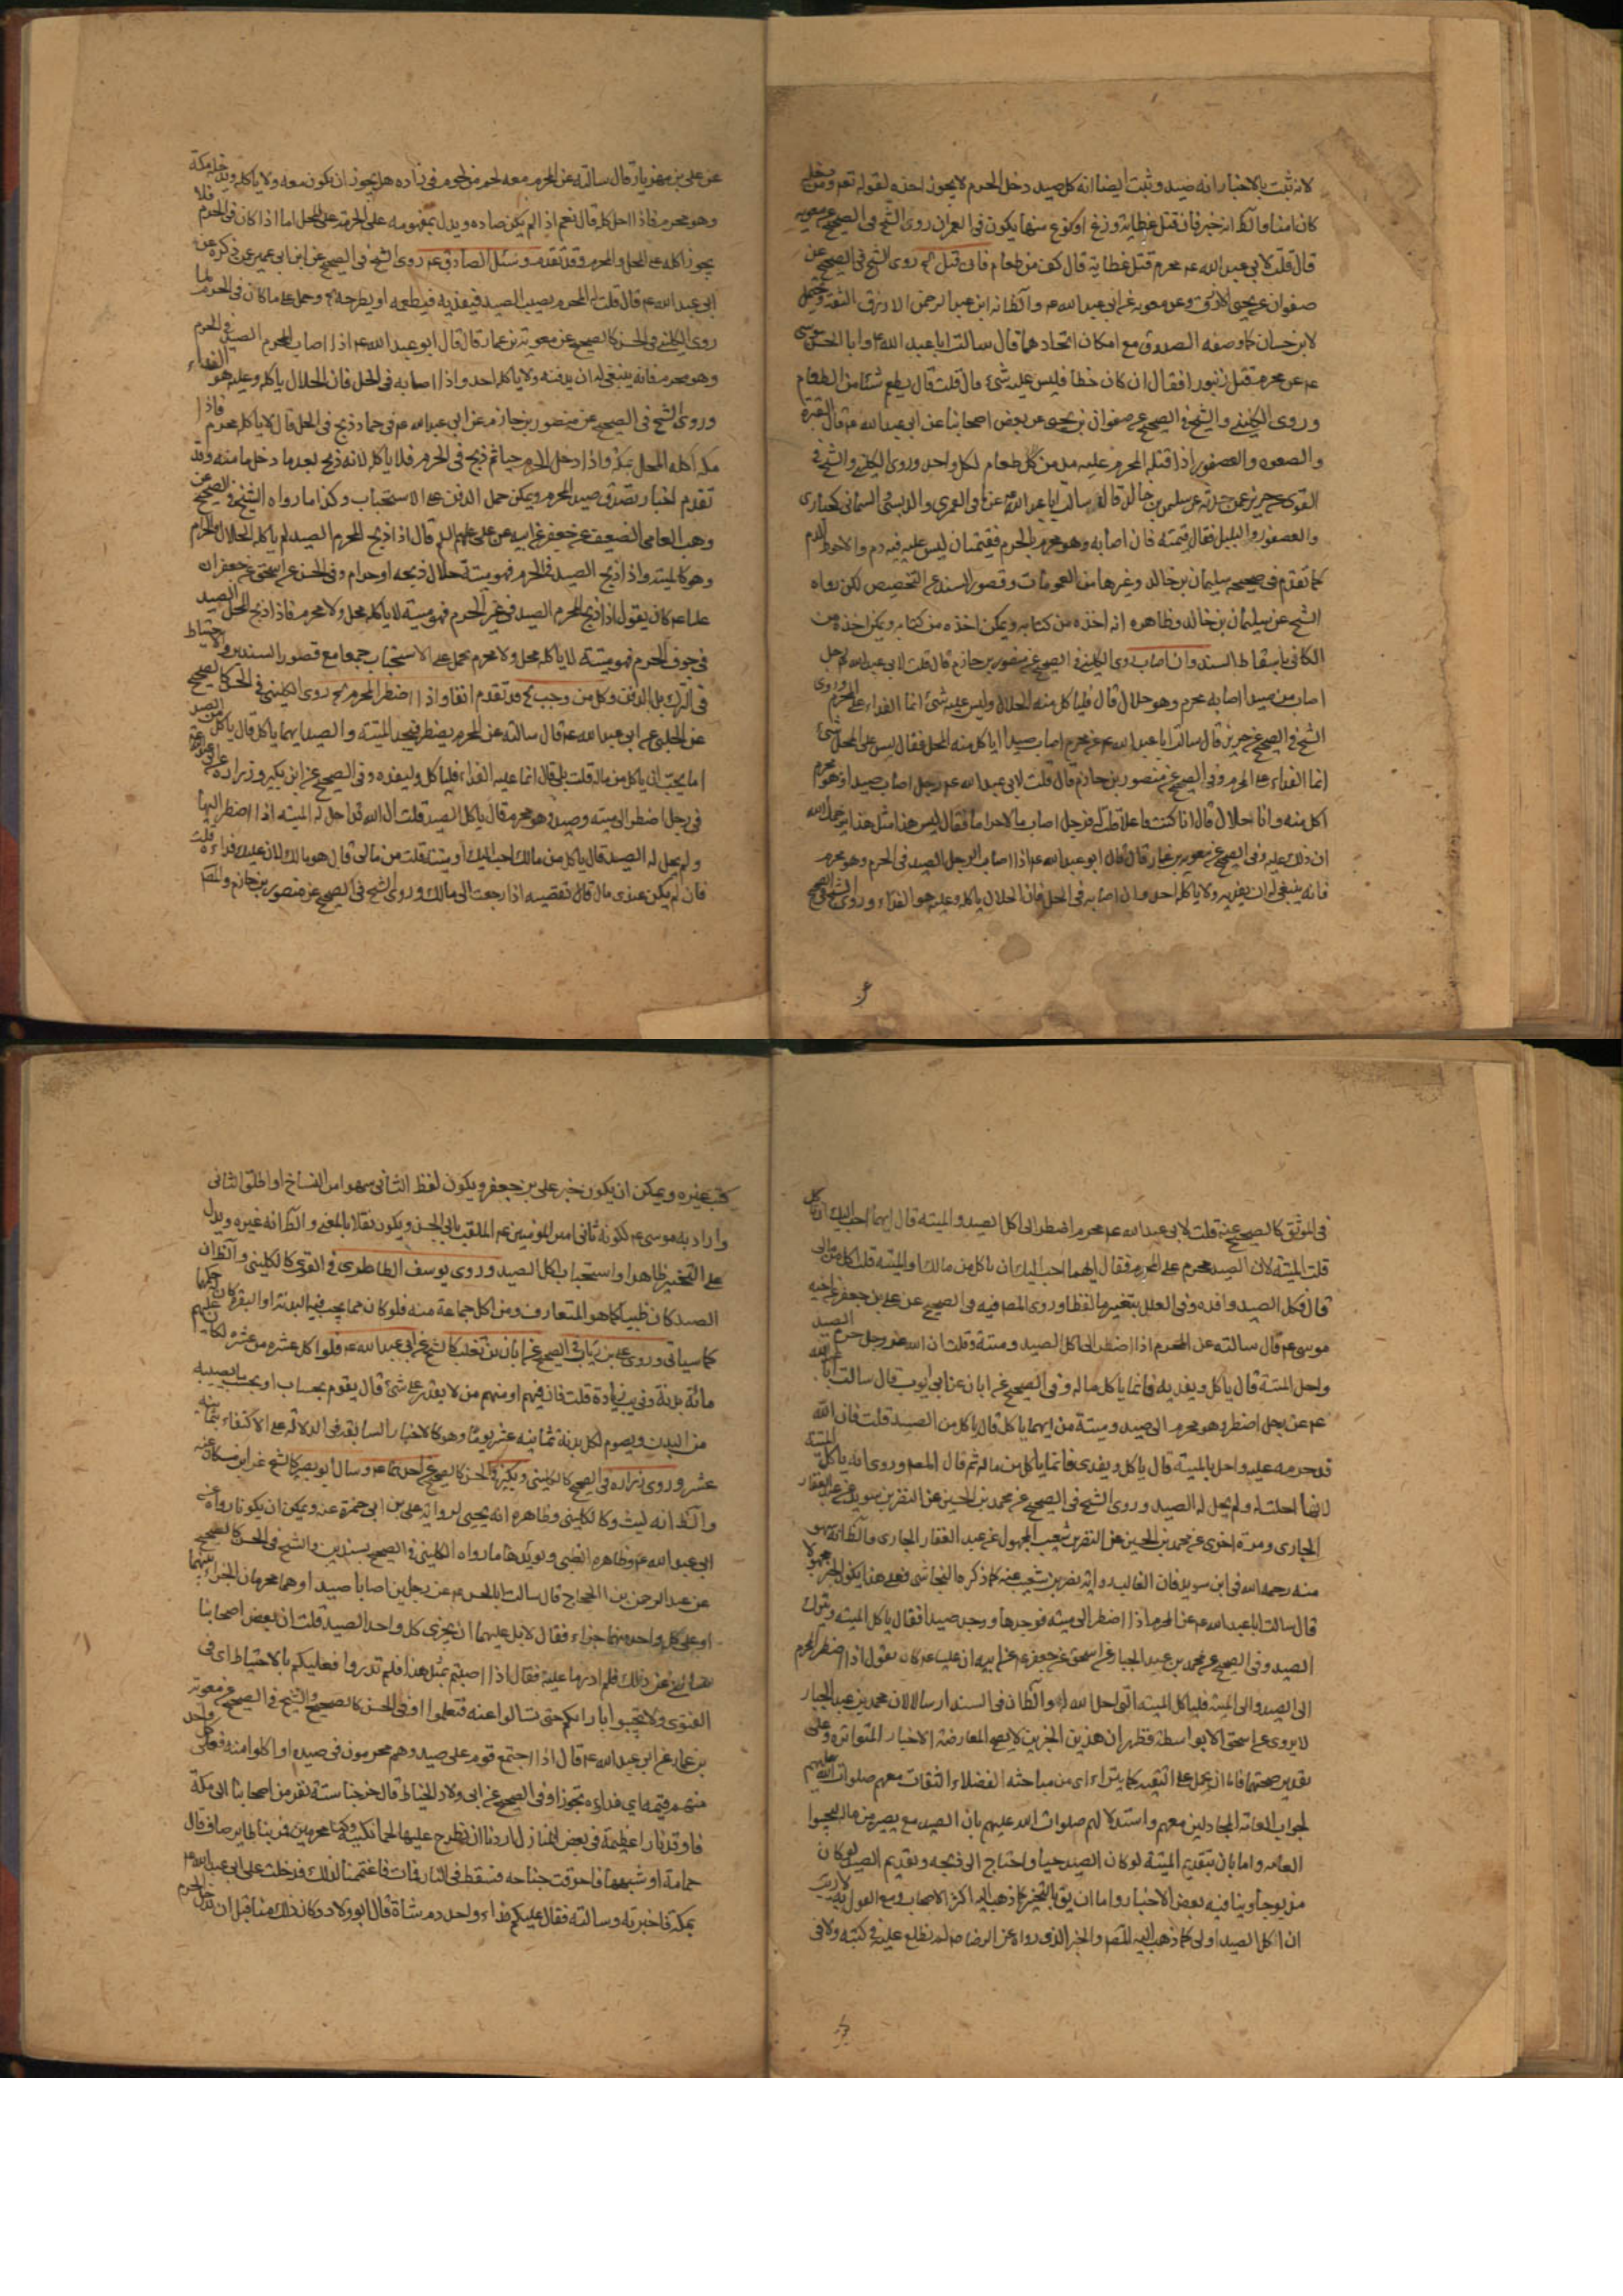 لانه ثبت بالاخبار انه صيد وثبت ايضا انه كل صيد دخل الحرم لا يجوز اخذه لقوله تعم ومن دخله
كان امنا والظ انه خبر فان قتل عظاية وزغ او نوع منها يكون في العمران روى الشيخ في الصحيح عن معويه
قال قلت لابي عبد الله عم محرم قتل عظاية قال كف من طعام فان قتل الخ روى الشيخ في الصحيح عن
صفوان عن يحيى الازرق وعن معويه عن ابي عبد الله عم والظ انه ابن عبد الرحمن الازرق الثقة ويحتمل
لابن حسان كما وصفه الصدوق مع امكان اتحادهما قال سالت ابا عبد الله عم وابا الحسن موسى
عم عن محرم قتل زنبورا فقال ان كان خطأ فليس عليه شئ قال قلت قال يطعم شيئا من الطعام
وروى الكليني والشيخ في الصحيح عن صفوان بن يحيى عن بعض اصحابنا عن ابي عبد الله عم قال القبرة
والصعوه والعصفور اذا قتله المحرم عليه مد من طعام لكل واحد وروى الكليني والشيخ في
القوى عن حريز عمن حدثه عن سليمن بن خالد قال سالت ابا عبد الله عم عما في القمري والدبسى والسمانى
والعصفور والبلبل فقال قيمته فان اصابه وهو محرم بالحرم فقيمتان ليس عليه فيه دم والاحوط الدم
كما تقدم في صحيحه سليمان بن خالد وغيرها من العمومات وقصور السند عن التخصيص لكن رواه
الشيخ عن سليمان بن خالد وظاهره انه اخذه من كتابه ويمكن اخذه من
الكافى باسقاط السند وان اصاب روى الكليني في الصحيح عن منصور بن حازم قال قلت لابي عبد الله عم رجل
اصاب من صيد اصابه محرم وهو حلال قال فلياكل منه الحلال وليس عليه شئ انما الفداء على المحرم وروى
الشيخ في الصحيح عن حريز قال سالت ابا عبد الله عم عن محرم اصاب صيدا اياكل منه المحل فقال ليس على المحل شئ
انما الفداء على المحرم وفى الصحيح عن منصور بن حازم قال قلت لابي عبد الله عم رجل اصاب صيدا وهو محرم
اكل منه وانا حلال قال انا كنت فاعلا قلت له فرجل اصاب مالا حراما فقال ليس هذا مثل هذا يرحمك الله
ان ذلك عليه وفى الصحيح عن معويه بن عمار قال قال ابو عبد الله عم اذا اصاب الرجل الصيد في الحرم وهو محرم
فانه ينبغى له ان يدفنه ولا ياكله احد وان اصابه في الحل فان الحلال ياكله وعليه هو الفداء وروى الشيخ في الصحيح
عن على بن مهزيار قال سالته عن المحرم معه لحم من لحوم في زاده هل يجوز ان يكون معه ولا ياكله ويدخله مكة
وهو محرم فاذا احل اكله قال نعم اذا لم يكن صاده ويدل بمفهومه على الحرمة على المحل اما اذا كان في الحرم فلا
يجوز اكله على المحل والمحرم وقد تقدم وسئل الصادق عم روى الشيخ في الصحيح عن ابن ابي عمير عمن ذكره عن
ابي عبد الله عم قال قلت له المحرم يصيب الصيد فيفديه فيطعمه او يطرحه الخ وحمل على ما كان في الحرم لما
روى الكليني في الحسن كالصحيح عن معوية بن عمار قال قال ابو عبد الله عم اذا اصاب المحرم الصيد في الحرم
وهو محرم فانه ينبغى له ان يدفنه ولا ياكله احد واذا اصابه في الحل فان الحلال ياكله وعليه هو الفداء
وروى الشيخ في الصحيح عن منصور بن حازم عن ابي عبد الله عم في حمام ذبح في الحل قال لا ياكله محرم فاذا
ادخل مكة اكله المحل بمكة واذا ادخل الحرم حيا ثم ذبح في الحرم فلا ياكله لانه ذبح بعد ما دخل مامنه وقد
تقدم اخبار تصدق صيد المحرم ويمكن حمل الدفن على الاستحباب وكذا ما رواه الشيخ في الصحيح عن
وهب العامى الضعيف عن جعفر عن ابيه عن على عليهم السلم قال اذا ذبح المحرم الصيد لم ياكله الحلال والحرام
وهو كالميتة واذا ذبح الصيد في الحرم فهو ميتة حلال ذبحه او حرام وفي الحسن عن اسحق عن جعفر ان
عليا عم كان يقول اذا ذبح المحرم الصيد في غير الحرم فهو ميتة لا ياكله محل ولا محرم فاذا ذبح المحل الصيد
في جوف الحرم فهو ميتة لا ياكله محل ولا محرم يحمل على الاستحباب جمعا مع قصور السندين والاحتياط
في الترك بل الدفن وكل من وجب الخ قد تقدم انفا واذا اضطر المحرم الخ روى الكليني في الحسن كالصحيح
عن الحلبى عن ابي عبد الله عم قال سالته عن المحرم يضطر فيجد الميتة والصيد ايهما ياكل قال ياكل من الصيد
اما يحب ان ياكل من ماله قلت بلى قال انما عليه الفداء فلياكل وليفده وفي الصحيح عن ابن بكير وزرارة عن ابي عبد الله عم
في رجل اضطر الى ميته وصيد وهو محرم قال ياكل الصيد قلت ان الله قد احل له الميته اذا اضطر اليها
ولم يحل له الصيد قال ياكل من مالك احب اليك او ميتة قلت من مالى قال هو مالك لان عليك فداءه قلت
فان لم يكن عندى مال قال تقضيه اذا رجعت الى مالك وروى الشيخ في الصحيح عن منصور بن حازم والمص
في الموثق كالصحيح عنه قلت لابى عبد الله عم محرم اضطر الى اكل الصيد والميته قال ايهما احب اليك ان تاكل
قلت الميتة لان الصيد محرم على المحرم فقال ايهما احب اليك ان تاكل من مالك او الميتة قلت اكل من مالى
قال فكل الصيد وافده وفي العلل بتغيير ما لفظا وروى المص فيه في الصحيح عن على بن جعفر عن اخيه
موسى عم قال سالته عن المحرم اذا اضطر الى اكل الصيد وميتة وقلت ان الله عز وجل حرم الصيد
واحل الميتة قال ياكل ويفديه فانما ياكل ماله وفي الصحيح عن ابان عن ابي ايوب قال سالت ابا عبد الله
عم عن رجل اضطر وهو محرم الى صيد وميتة من ايهما ياكل قال ياكل من الصيد قلت فان الله
قد حرمه عليه واحل له الميتة قال ياكل ويفدى فانما ياكل من ماله ثم قال المص وروى انه ياكل الميتة
لانها احلت له ولم يحل له الصيد وروى الشيخ في الصحيح عن محمد بن الحسين عن النضر بن سويد عن عبد الغفار
الجازى ومرة اخرى عن محمد بن الحسين عن النضر بن شعيب المجهول عن عبد الغفار الجازى والظ انه سهو
منه رحمه الله في ابن سويد فان الغالب رواية نضر بن شعيب عنه كما ذكره النجاشى فعلى هذا يكون الخبر مجهولا
قال سالت ابا عبد الله عم عن المحرم اذا اضطر الى ميته فوجدها ووجد صيدا فقال ياكل الميته ويترك
الصيد وفي الصحيح عن محمد بن عبد الجبار عن اسحق عن جعفر عم عن ابيه ان عليا عم كان يقول اذا اضطر المحرم
الى الصيد والى الميتة فلياكل الميته التى احل الله له والظ ان في السند ارسالا لان محمد بن عبد الجبار
لا يروى عن اسحق الا بواسطة فظهر ان هذين الخبرين لا يصح المعارضة الاخبار المتواترة وعلى
تقدير صحتهما فاما ان يحمل على التقية كما يتراءاى من مباحثه الفضلاء الثقات معهم صلوات الله عليهم
لجواب العامة المجادلين معهم واستدلالهم صلوات الله عليهم بان الصيد مع يصير من ماله ليجيبوا
العامه واما بان بتقديم الميتة لو كان الصيد حيا واحتاج الى ذبحه وبقديم الصيد لو كان
مذبوحا وينافيه بعض الاخبار واما ان يق بالتخيير كما ذهب اليه اكثر الاصحاب ومع القول به لا ريب
ان اكل الصيد اولى كما ذهب اليه المص والخبر الذى رواه عن الرضا عم لم نطلع عليه في كتبه ولا في
كتب غيره ويمكن ان يكون خبر على بن جعفر ويكون لفظ الثانى سهوا من النساخ او اطلق الثانى
واراد به موسى عم لكونه ثانى امن الموسين عم الملقب بابى الحسن ويكون نقلا بالمعنى والظ انه غيره ويدل
على التخيير ظاهرا واستحباب اكل الصيد وروى يوسف الطاطرى في القوى كالكلينى والظ ان
الصيد كان ظبيا كما هو المتعارف ومن اكل جماعة منه فلو كان مما يجب فيه البدنة او البقر كان حكمها
كما سياتى وروى على بن رئاب في الصحيح عن ابان بن تغلب كالشيخ عن ابى عبد الله عم فلو اكل عشره من عشره لكان عليهم
مائة بدنة وفي يب زيادة قلت فان فيهم او منهم من لا يقدر على شئ قال يقوم بحساب او بحسب ما يصيبه
من البدن ويصوم لكل بدنة ثمانية عشر يوما وهو كالاخبار السابقة في الدلالة على الاكتفاء بثمانيه
عشر وروى زراره في الصحيح كالكلينى وبكير في الحسن كالصحيح عن احدهما عم وسال ابو بصير كالشيخ عن ابن مسكان عنه
والظ انه ليث وكالكلينى وظاهره انه يحيى لرواية على بن ابى حمزة عنه ويمكن ان يكونا رواه عنه
ابي عبد الله عم وظاهره الظبى ويؤيدها ما رواه الكلينى في الصحيح بسندين والشيخ في الحسن كالصحيح
عن عبد الرحمن بن الحجاج قال سالت ابا الحسن عم عن رجلين اصابا صيدا وهما محرمان الجزاء بينهما
او على كل واحد منهما جزاء فقال لا بل عليهما ان يجزى كل واحد الصيد قلت ان بعض اصحابنا
سالنى عن ذلك فلم ادر ما عليه فقال اذا اصبتم بمثل هذا فلم تدروا فعليكم بالاحتياط اى في
الفتوى ولا تجيبوا بارائكم حتى تسالوا عنه فتعلموا وفى الحسن كالصحيح والشيخ في الصحيح عن معويه
بن عمار عن ابى عبد الله عم قال اذا اجتمع قوم على صيد وهم محرمون في صيده او اكلوا منه فعلى كل واحد
منهم قيمته اى فداءه تجوزا وفى الصحيح عن ابى ولاد الحناط قال خرجنا ستة نفر من اصحابنا الى مكة
فاوقدنا نارا عظيمة في بعض المنازل اردنا ان نطرح عليها لحما نكببه وكنا محرمين فمر بنا طاير صاف قال
حمامة او شبهها فاحرقت جناحه فسقط في النار فمات فاغتممنا لذلك فدخلت على ابى عبد الله عم
بمكة فاخبرته وسالته فقال عليكم فداء واحد دم شاة قال ابو ولاد وكان ذلك منا قبل ان ندخل الحرم